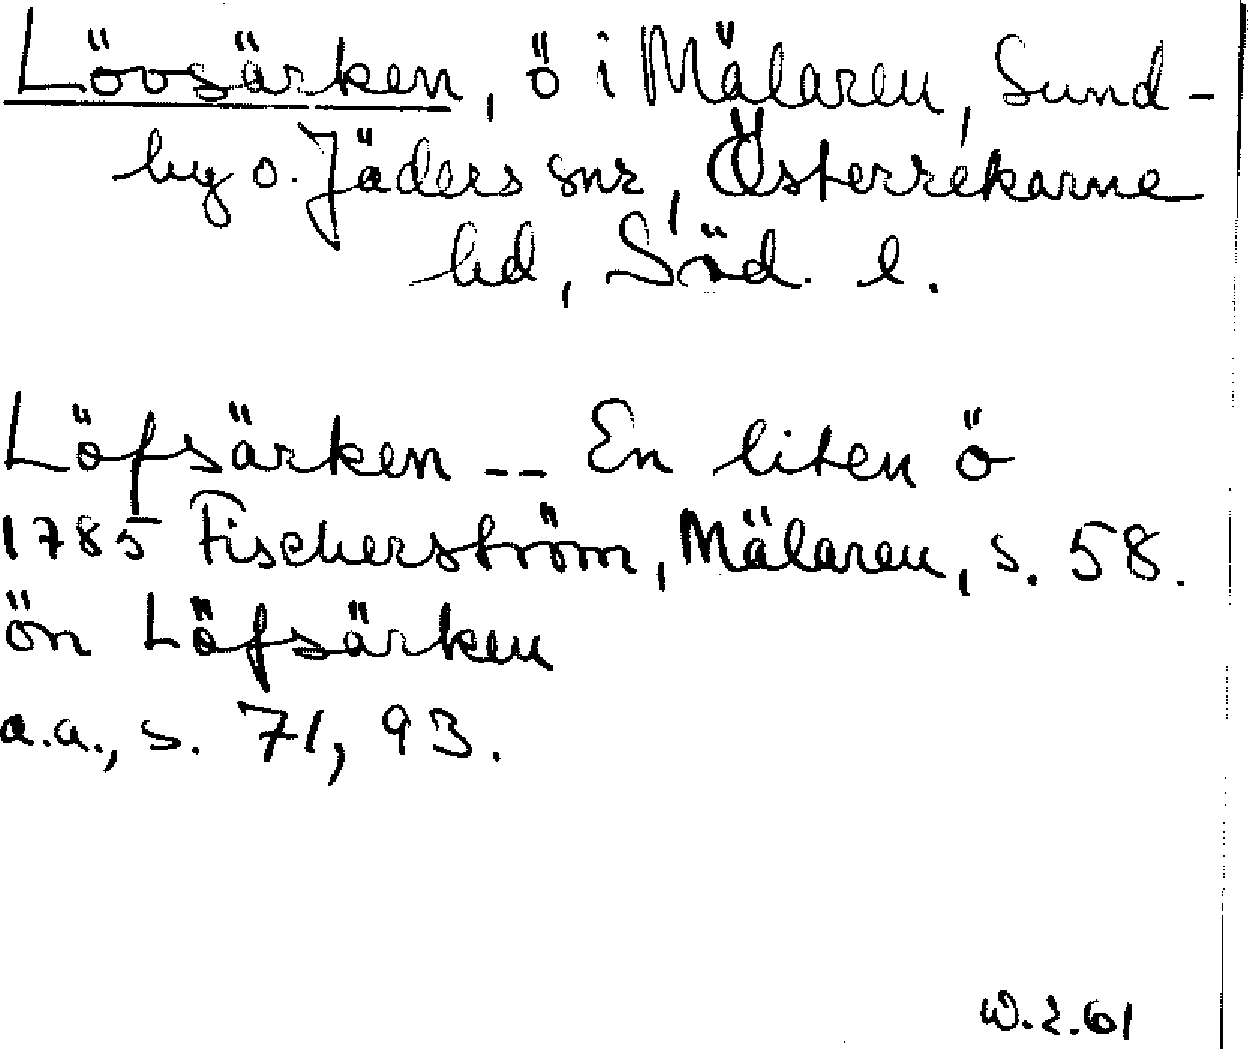 Lövsärken, ö i Mälaren, Sund-
by o. Jäders snr, Österrekarne
hd, Söd. l.
Löfsärken -- En liten ö
1785 Fischerström, Mälaren, s. 58.
ön Löfsärken
a.a., s. 71, 93.
W.2.61